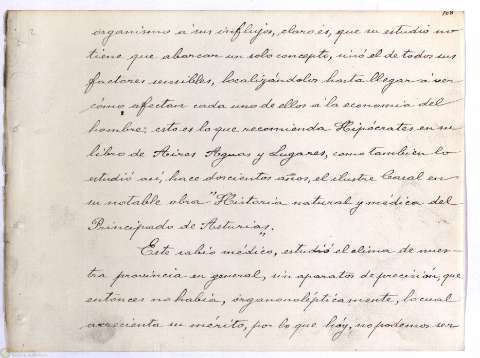 organismo á sus influjos, claro és, que su estudio no
tiene que abarcar un solo concepto, sinó el de todos sus
factores sensibles, localizándolos hasta llegar á ver
cómo afectan cada uno de ellos á la economia del
hombre; esto es lo que recomienda Hipócrates en su
libro de Aires Aguas y Lugares, como también lo
estudió así, hace doscientos años, el ilustre Casal en
su notable obra "Historia natural y medica del
Principado de Asturias".
Este sabio médico, estudió el clima de nues-
tra provincia en general, sin aparatos de precisión, que
entonces no había, órganonolépticamente, lo cual
acrecienta su mérito, por lo que hóy, no podemos ser